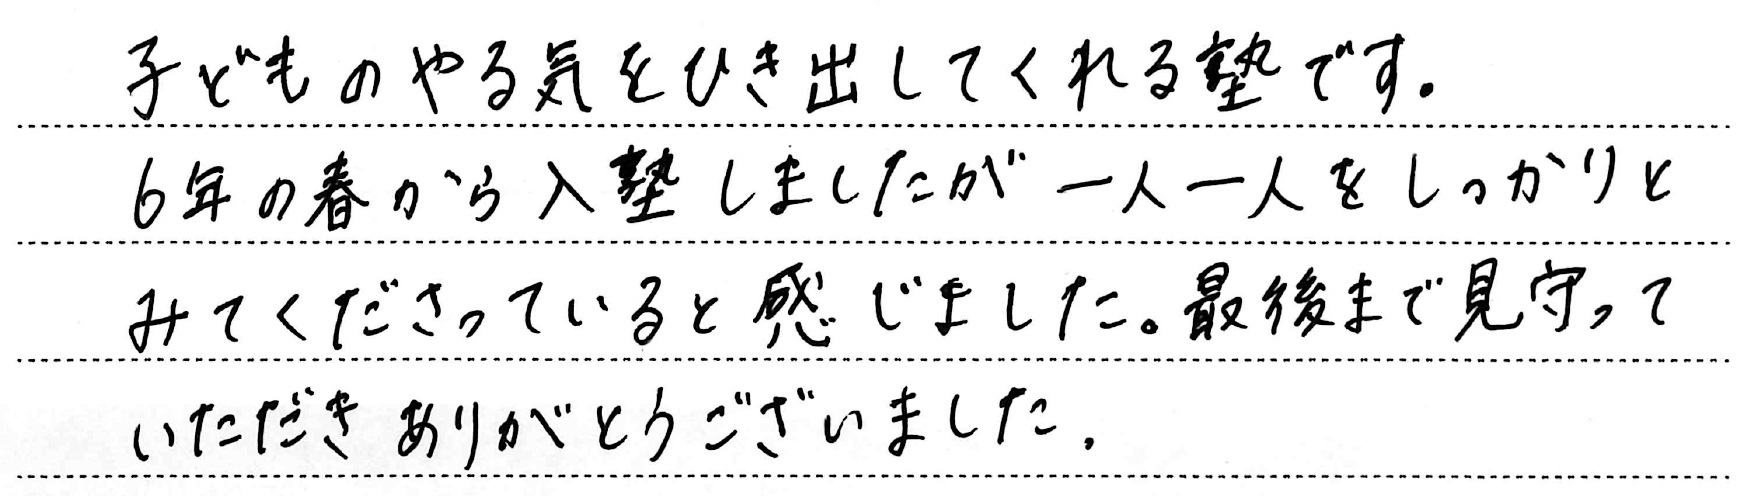 子どものやる気をひき出してくれる塾です。
6年の春から入塾しましたが一人一人をしっかりと
みてくださっていると感じました。最後まで見守って
いただきありがとうございました。